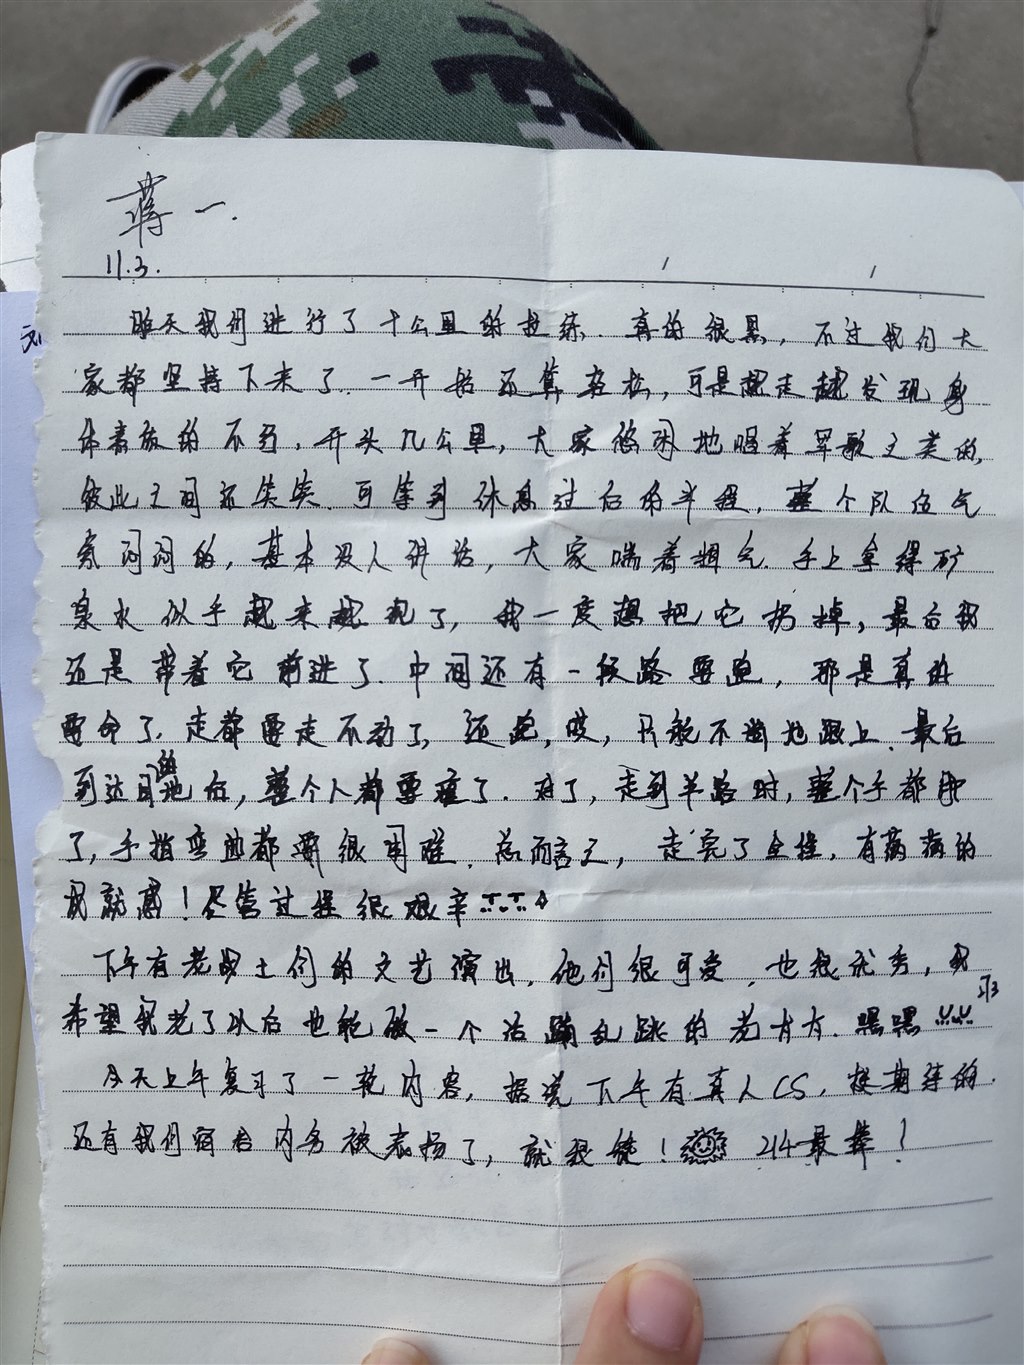 一.
11.3.
昨天我们进行了十公里的拉练.真的很累,不过我们大
家都坚持下来了.一开始还算轻松,可是越走越发现身
体素质的不行,开头几公里,大家悠闲地唱着军歌之类的,
彼此之间还笑笑.可等到休息过后的半程,整个队伍气
氛闷闷的,基本没人讲话,大家喘着粗气.手上拿得矿
泉水似乎越来越沉了,我一度想把它扔掉,最后我
还是带着它前进了.中间还有一段路要跑,那是真的
要命了.走都要走不动了,还跑,哎,只能不断地跟上.最后
到达目的地后,整个人都要废了.对了,走到半路时,整个手都肿
了,手指弯曲都要很困难.总而言之,走完了全程,有满满的
成就感!尽管过程很艰辛
下午有老战士们的文艺演出,他们很可爱,也很优秀,我
希望我老了以后也能做一个活蹦乱跳的老.嘿嘿
今天上午复习了一艺内容,据说下午有真人CS,挺期待的.
还有我们宿舍内务被表扬了,就很绝!214最棒!